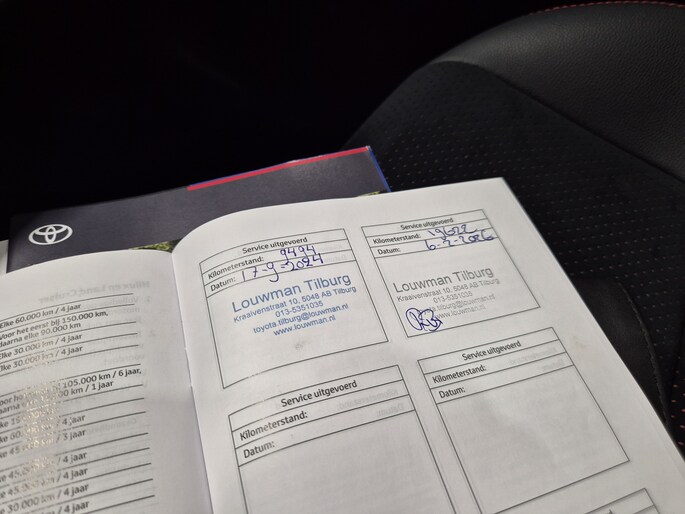 Elke 60.000 km / 4 jaar
Voor het eerst bij 150.000 km,
daarna elke 90.000 km
Elke 30.000 km / 4 jaar
Elke 30.000 km / 4 jaar
105.000 km / 6 jaar,
km / 1 jaar
km / 4 jaar
km / 3 jaar
km / 4 jaar
45.000 km / 4 jaar
30.000 km / 4 jaar
Service uitgevoerd
Kilometerstand: 9494
Datum: 17-9-2024
Louwman Tilburg
Kraaivenstraat 10, 5048 AB Tilburg
013-5351035
toyota.tilburg@louwman.nl
www.louwman.nl
Service uitgevoerd
Kilometerstand: 19622
Datum: 6-2-2026
Louwman Tilburg
Kraaivenstraat 10, 5048 AB Tilburg
013-5351035
toyota.tilburg@louwman.nl
www.louwman.nl
Service uitgevoerd
Kilometerstand:
Datum:
Service uitgevoerd
Kilometerstand:
Datum: